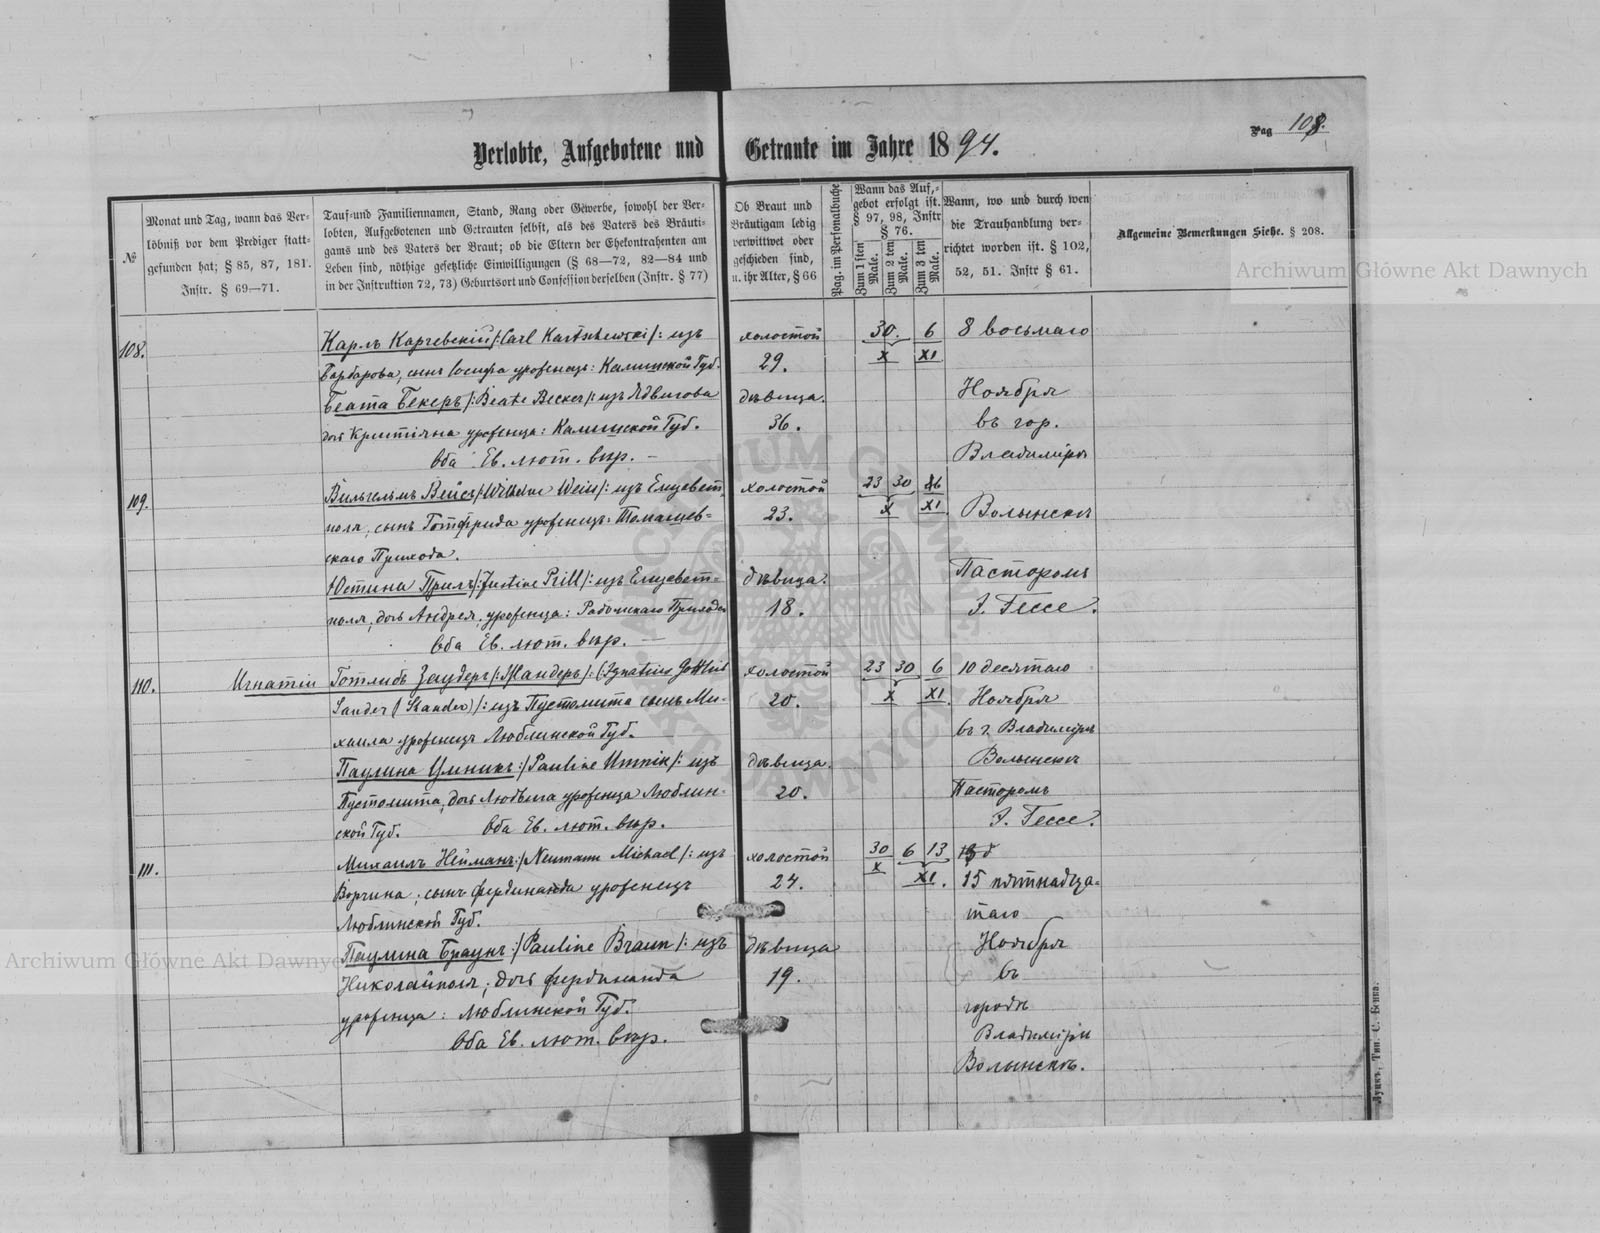 Pag 108.
Verlobte, Aufgebotene und Getraute im Jahre 1894.
№
Monat und Tag, wann das Ver-
löbniß vor dem Prediger statt-
gefunden hat; § 85, 87, 181.
Instr. § 69—71.
Tauf- und Familiennamen, Stand, Rang oder Gewerbe, sowohl der Ver-
lobten, Aufgebotenen und Getrauten selbst, als des Vaters des Bräuti-
gams und des Vaters der Braut; ob die Eltern der Ehekontrahenten am
Leben sind, nöthige gesetzliche Einwilligungen (§ 68—72, 82—84 und
in der Instruktion 72, 73) Geburtsort und Confession derselben (Instr. § 77)
Ob Braut und
Bräutigam ledig
verwittwet oder
geschieden sind,
u. ihr Alter, § 66
Pag. im Personalbuche
Wann das Auf-
gebot erfolgt ist.
§ 97, 98, Instr
§ 76.
Zum 1sten Male.
Zum 2 ten Male.
Zum 3 ten Male.
Wann, wo und durch wen
die Trauhandlung ver-
richtet worden ist. § 102,
52, 51. Instr § 61.
Allgemeine Bemerkungen Siehe. § 208.
108.
Карлъ Карчевскій /: Carl Kartschewski /: изъ
Барбарова, сынъ Іосифа уроженецъ: Калишской Губ.
Беата Бекеръ /: Beate Becker /: изъ Ядвигова
дочь Христіана уроженца: Калишской Губ.
Оба Ев. лют. вѣр. —
холостой
29.
дѣвица.
36.
30. 6
X XI
8 восьмаго
Ноября
въ гор.
Владимірѣ
109.
Вильгельмъ Вейсъ /: Wilhelm Weiss /: изъ Елизавет-
поля, сынъ Готфрида уроженецъ: Томашев-
скаго Прихода.
Юстина Приль /: Justine Prill /: изъ Елизавет-
поля, дочь Андрея, уроженца: Рожищскаго Прихода
Оба Ев. лют. вѣр. —
холостой
23.
дѣвица.
18.
23 30 6
X XI
Волынскѣ
Пасторомъ
Э. Гессе.
110.
Игнатій Готлибъ Заудеръ /: Жандеръ /: (Ignatius Gottlieb
Sander (Skander) /: изъ Пустомита сынъ Ми-
хаила уроженецъ Люблинской Губ.
Паулина Умникъ :/ Pauline Umnik /: изъ
Пустомита, дочь Людвига уроженца Люблин-
ской Губ. Оба Ев. лют. вѣр.
холостой
20.
дѣвица.
20.
23 30 6
X XI
10 десятаго
Ноября
въ г. Владимірѣ
Волынскѣ
Пасторомъ
Э. Гессе.
111.
Михаилъ Нейманъ :/ Neumann Michael /: изъ
Ворчина; сынъ Фердинанда уроженецъ
Люблинской Губ.
Паулина Браунъ :/ Pauline Braun /: изъ
Николайполя; дочь Фердинанда
уроженца: Люблинской Губ.
Оба Ев. лют. вѣр.
холостой
24.
дѣвица
19.
30 6 13
X XI.
15 пятнадца-
таго
Ноября
въ
городѣ
Владимірѣ
Волынскѣ.
Луцкъ, Тип. С. Бенка.
Archiwum Główne Akt Dawnych
Archiwum Główne Akt Dawnych